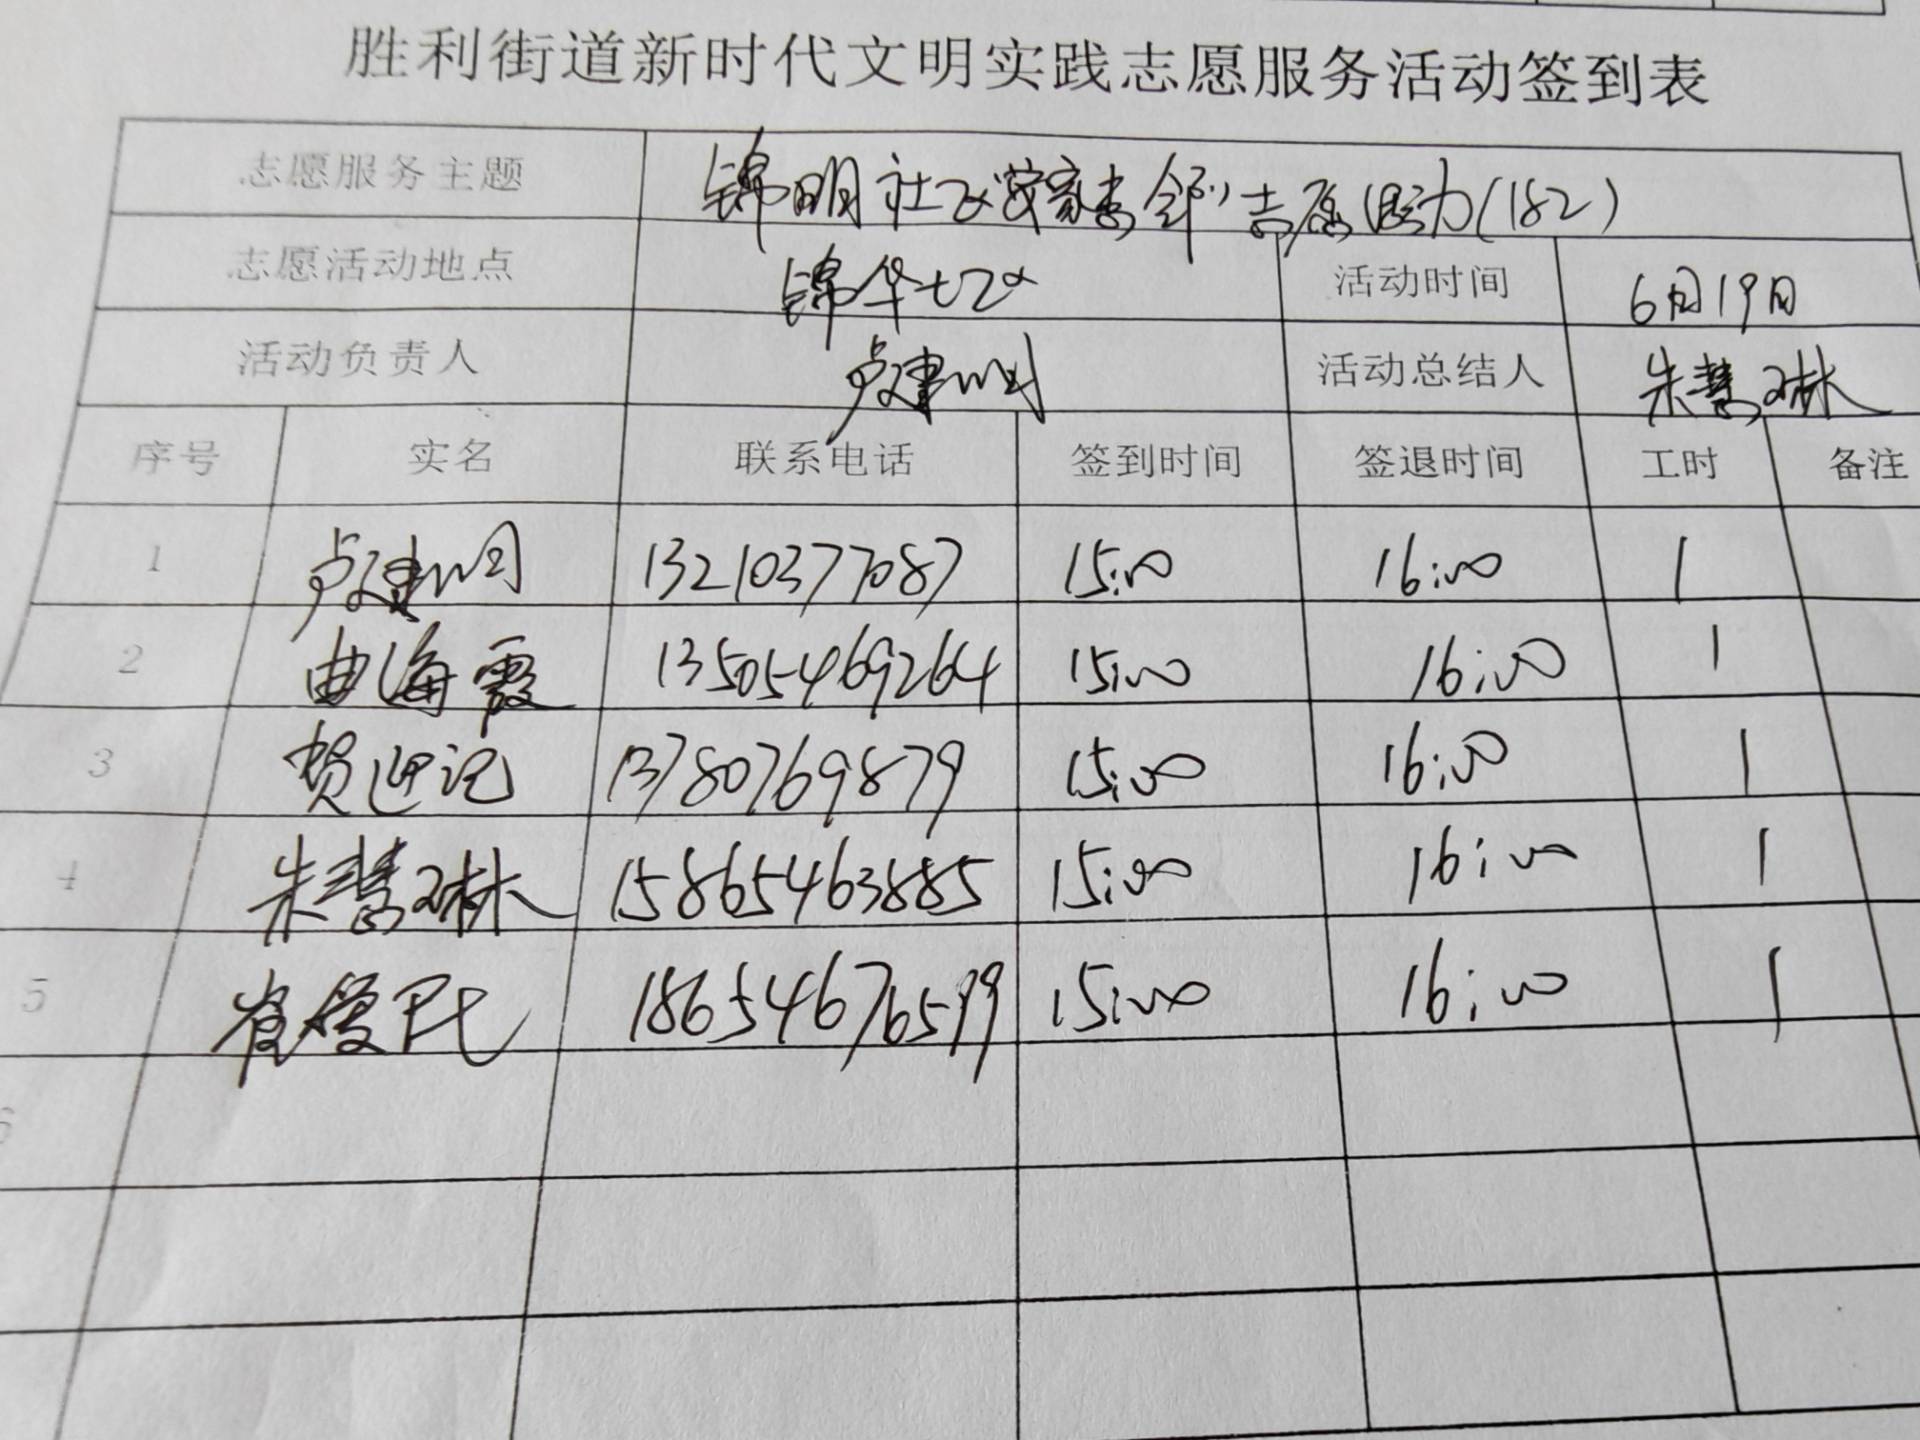 胜利街道新时代文明实践志愿服务活动签到表
志愿服务主题 锦明社区 志愿助力(182)
志愿活动地点 锦华七区 活动时间 6月19日
活动负责人 卢建明 活动总结人 朱慧琳
序号 实名 联系电话 签到时间 签退时间 工时 备注
1 卢建明 13210377087 15:00 16:00 1
2 曲海霞 13505469264 15:00 16:00 1
3 贺迎记 13780769879 15:00 16:00 1
4 朱慧琳 15865463885 15:00 16:00 1
5 崔 18654676599 15:00 16:00 1
6